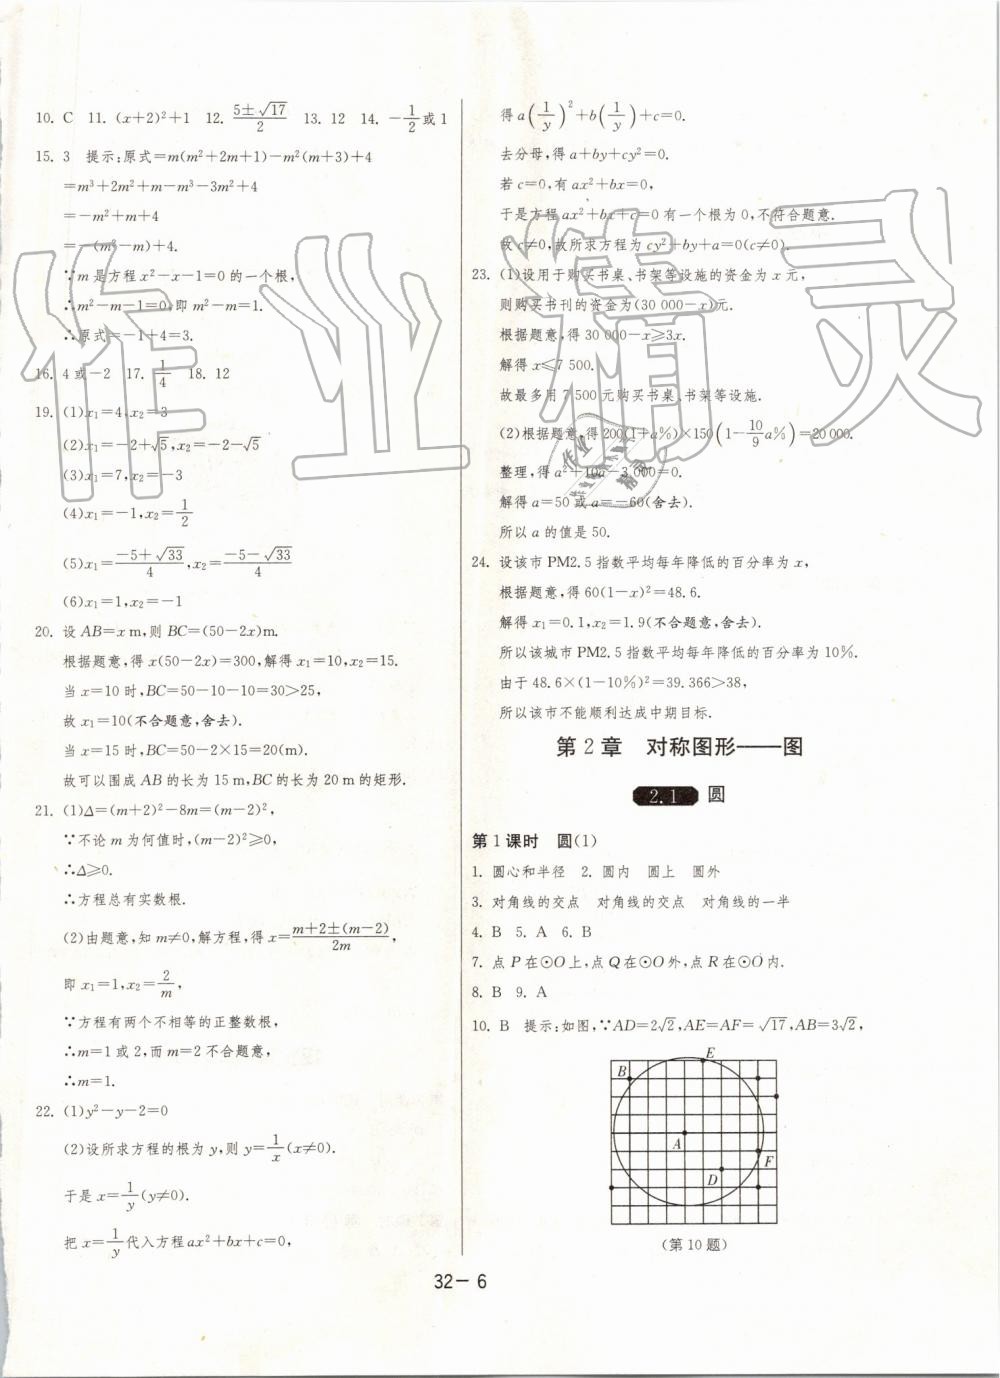 10. C  11. (x+2)²+1  12. (5±√17)/2  13. 12  14. −1/2或1
15. 3  提示:原式=m(m²+2m+1)−m²(m+3)+4
=m³+2m²+m−m³−3m²+4
=−m²+m+4
=−(m²−m)+4.
∵m是方程x²−x−1=0的一个根,
∴m²−m−1=0,即m²−m=1.
∴原式=−1+4=3.
16. 4或−2  17. 1/4  18. 12
19. (1)x₁=4,x₂=3
(2)x₁=−2+√5,x₂=−2−√5
(3)x₁=7,x₂=−3
(4)x₁=−1,x₂=1/2
(5)x₁=(−5+√33)/4,x₂=(−5−√33)/4
(6)x₁=1,x₂=−1
20. 设AB=x m,则BC=(50−2x)m.
根据题意,得x(50−2x)=300,解得x₁=10,x₂=15.
当x=10时,BC=50−10−10=30>25,
故x₁=10(不合题意,舍去).
当x=15时,BC=50−2×15=20(m).
故可以围成AB的长为15 m,BC的长为20 m的矩形.
21. (1)Δ=(m+2)²−8m=(m−2)²,
∵不论m为何值时,(m−2)²≥0,
∴Δ≥0.
∴方程总有实数根.
(2)由题意,知m≠0,解方程,得x=(m+2±(m−2))/2m,
即x₁=1,x₂=2/m,
∵方程有两个不相等的正整数根,
∴m=1或2,而m=2不合题意,
∴m=1.
22. (1)y²−y−2=0
(2)设所求方程的根为y,则y=1/x(x≠0).
于是x=1/y(y≠0).
把x=1/y代入方程ax²+bx+c=0,
得a(1/y)²+b(1/y)+c=0.
去分母,得a+by+cy²=0.
若c=0,有ax²+bx=0,
于是方程ax²+bx+c=0有一个根为0,不符合题意.
故c≠0,故所求方程为cy²+by+a=0(c≠0).
23. (1)设用于购买书桌、书架等设施的资金为x元,
则购买书刊的资金为(30 000−x)元.
根据题意,得30 000−x≥3x.
解得x≤7 500.
故最多用7 500元购买书桌、书架等设施.
(2)根据题意,得200(1+a%)×150(1−10/9a%)=20 000.
整理,得a²+10a−3 000=0.
解得a=50或a=−60(舍去).
所以a的值是50.
24. 设该市PM2.5指数平均每年降低的百分率为x,
根据题意,得60(1−x)²=48.6.
解得x₁=0.1,x₂=1.9(不合题意,舍去).
所以该城市PM2.5指数平均每年降低的百分率为10%.
由于48.6×(1−10%)²=39.366>38,
所以该市不能顺利达成中期目标.
第2章  对称图形——图
2.1 圆
第1课时  圆(1)
1. 圆心和半径  2. 圆内  圆上  圆外
3. 对角线的交点  对角线的交点  对角线的一半
4. B  5. A  6. B
7. 点P在⊙O上,点Q在⊙O外,点R在⊙O内.
8. B  9. A
10. B  提示:如图,∵AD=2√2,AE=AF=√17,AB=3√2,
E
B
A
F
D
(第10题)
32−6
作业精灵
作业
精灵